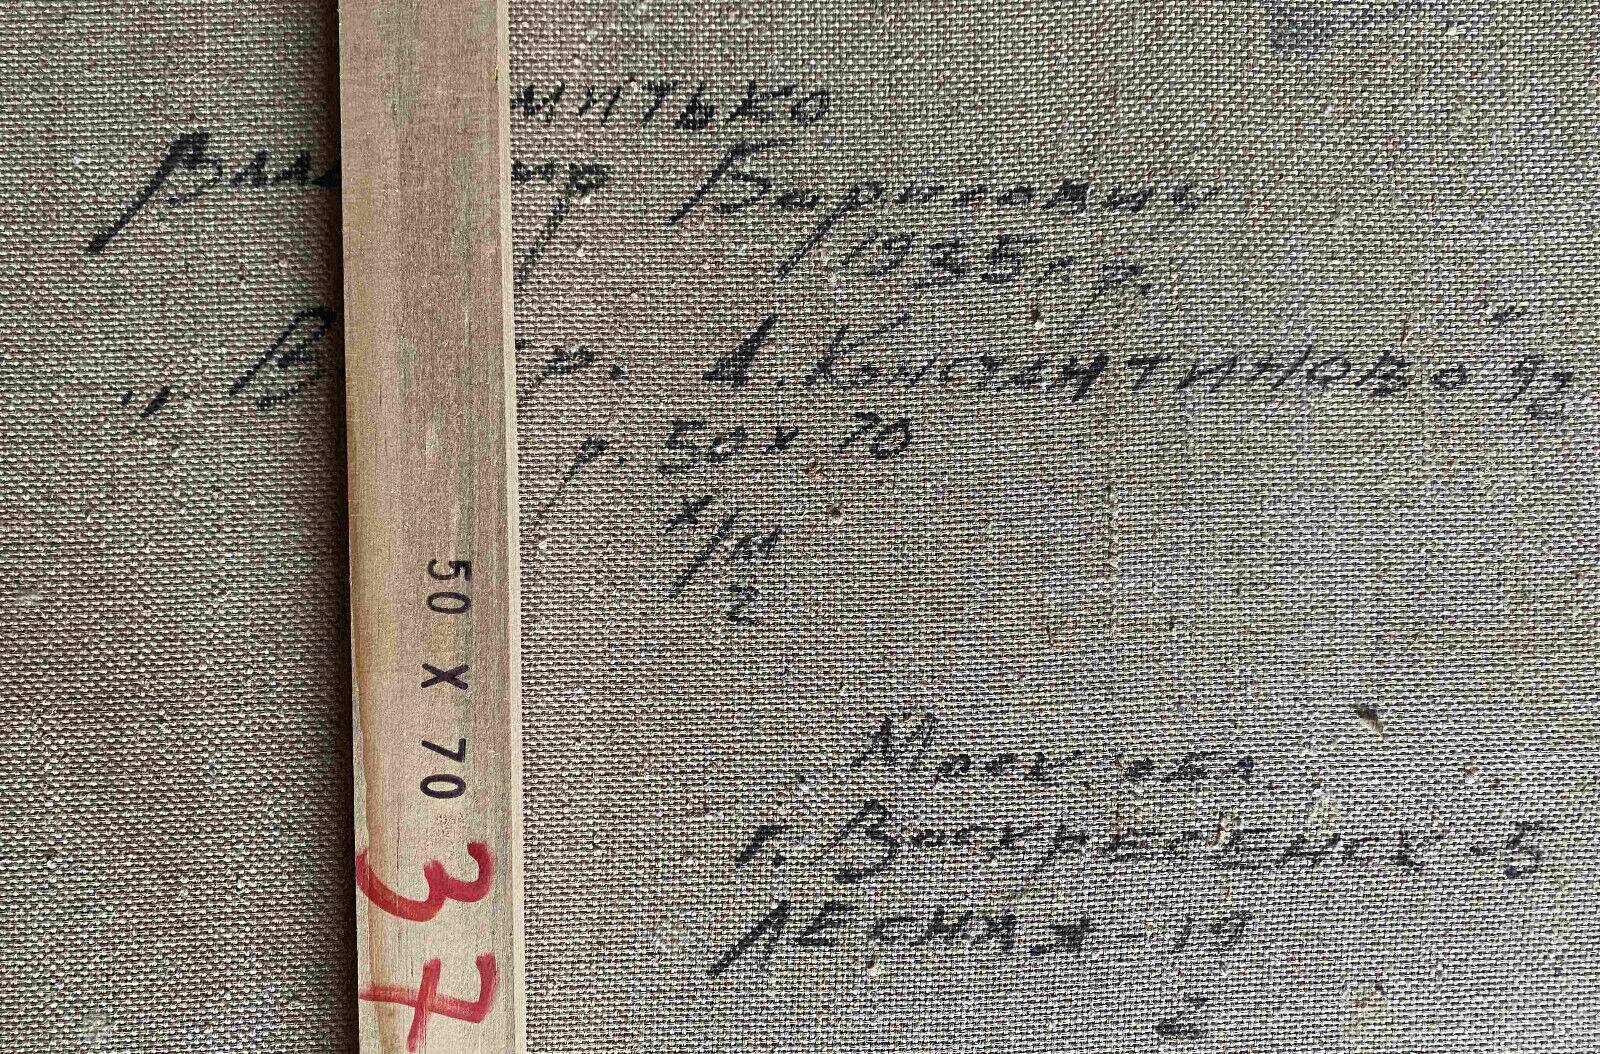 митько
Влад мир Борисович
1935 г.р.
„ В р. д. Константиново" 92
р. 50 x 70
х/м
2
Моск обл
г. Воскресенск - 5
ЛЕСНАЯ - 19
2
50 X 70
37